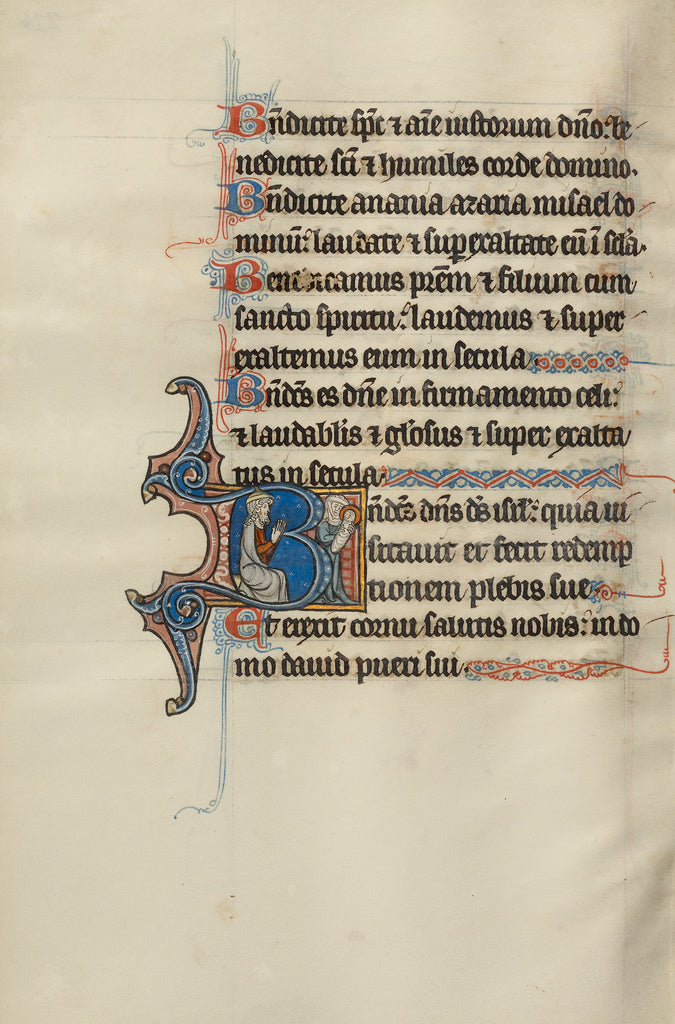 Bn̄dicite sp̄c ⁊ aīe iustorum dn̄o: be
nedicite sc̄i ⁊ humiles corde domino.
Bn̄dicite anania azaria misael do
minū: laudate ⁊ sup exaltate eū ī sc̄la.
Benedicamus prēm ⁊ filium cum
sancto spiritu: laudemus ⁊ super
exaltemus eum in secula.
Bn̄dc̄s es dn̄e in firmamento celi:
⁊ laudabl̄is ⁊ gl̄osus ⁊ super exalta
tus in secula.
Bn̄dc̄s dn̄s ds̄ isrl̄: quia ui
sitauit et fecit redemp
tionem plebis sue.
Et erexit cornu salutis nobis: in do
mo dauid pueri sui.